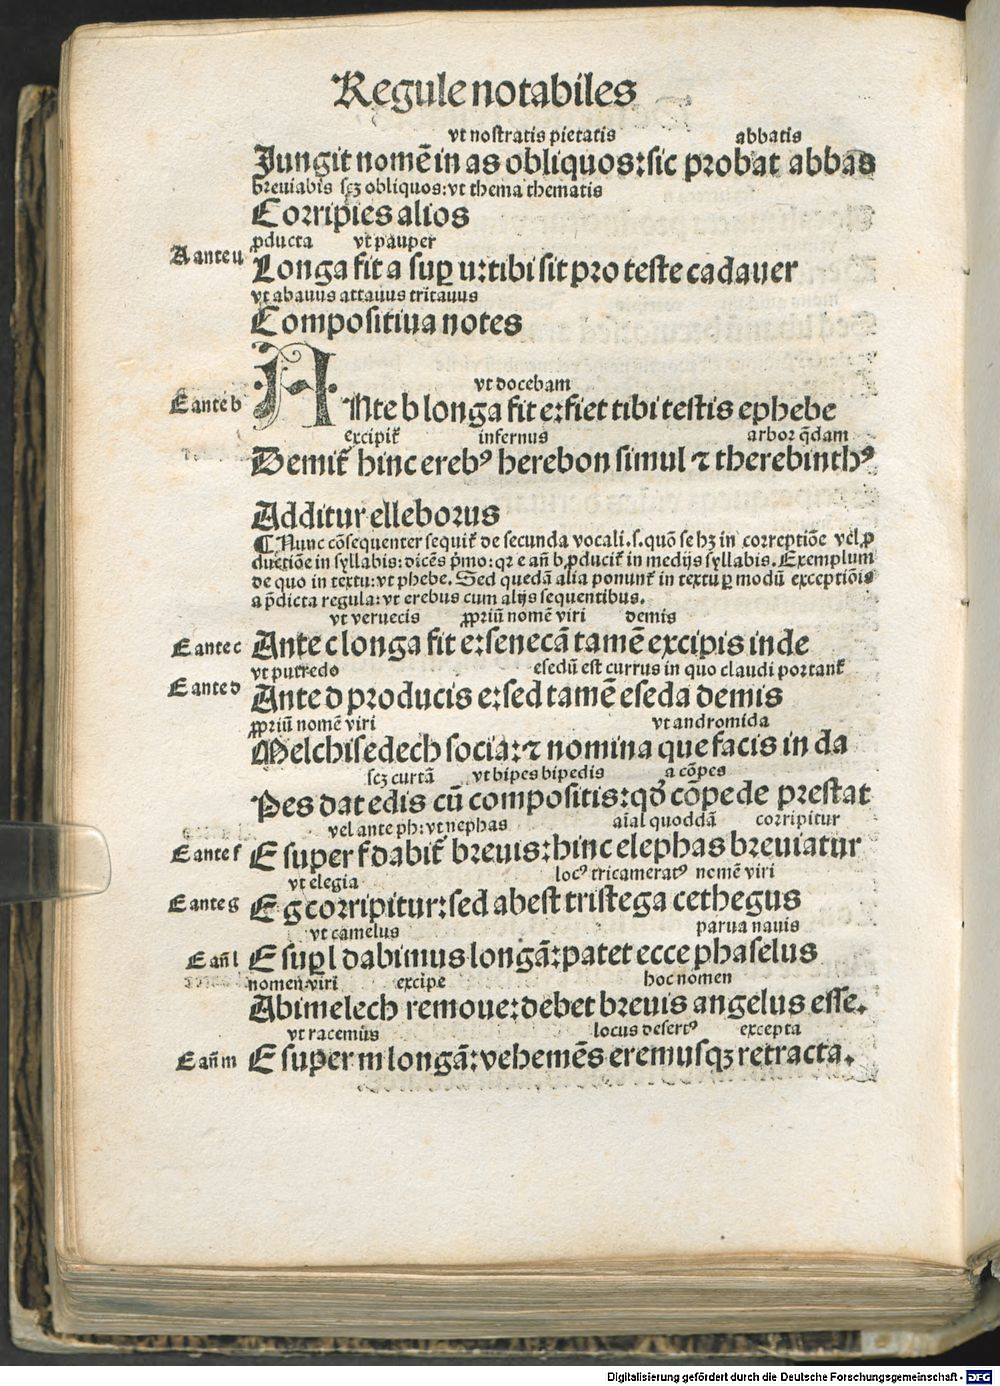 Regule notabiles
vt nostratis pietatis abbatis
Jungit nomē in as obliquos: sic probat abbas
breuiabis scꝫ obliquos: vt thema thematis
Corripies alios
ꝓducta vt pauper
A ante u
Longa fit a suꝑ u: tibi sit pro teste cadauer
vt abauus attauus tritauus
Compositiua notes
vt docebam
E ante b
ANte b longa fit e: fiet tibi testis ephebe
excipit᷑ infernus arbor q̄dam
Demit᷑ hinc erebꝰ herebon simul ⁊ therebinthꝰ
Additur elleborus
¶ Nunc cōsequenter sequit᷑ de secunda vocali .s. quō se hꝫ in correptiōe vel ꝓ
ductiōe in syllabis: dicēs p̄mo: qꝛ e añ b ꝓducit᷑ in medijs syllabis. Exemplum
de quo in textu: vt phebe. Sed quedā alia ponunt᷑ in textu ꝑ modū exceptiōis
a p̄dicta regula: vt erebus cum alijs sequentibus.
vt veruecis ꝓpriū nomē viri demis
E ante c
Ante c longa fit e: senecā tamē excipis inde
vt putredo esedū est currus in quo claudi portant᷑
E ante d
Ante d producis e: sed tamē eseda demis
ꝓpriū nomē viri vt andromida
Melchisedech socia: ⁊ nomina que facis in da
scꝫ curtā vt bipes bipedis a cōpes
Pes dat edis cū compositis: qd̄ cōpede prestat
vel ante ph: vt nephas aīal quoddā corripitur
E ante f
E super f dabit᷑ breuis: hinc elephas breuiatur
vt elegia locꝰ tricameratꝰ nomē viri
E ante g
E g corripitur: sed abest tristega cethegus
vt camelus parua nauis
E añ l
E suꝑ l dabimus longā: patet ecce phaselus
nomen viri excipe hoc nomen
Abimelech remoue: debet breuis angelus esse.
vt racemus locus desertꝰ excepta
E añ m
E super m longā: vehemēs eremusqꝫ retracta.
Digitalisierung gefördert durch die Deutsche Forschungsgemeinschaft - DFG